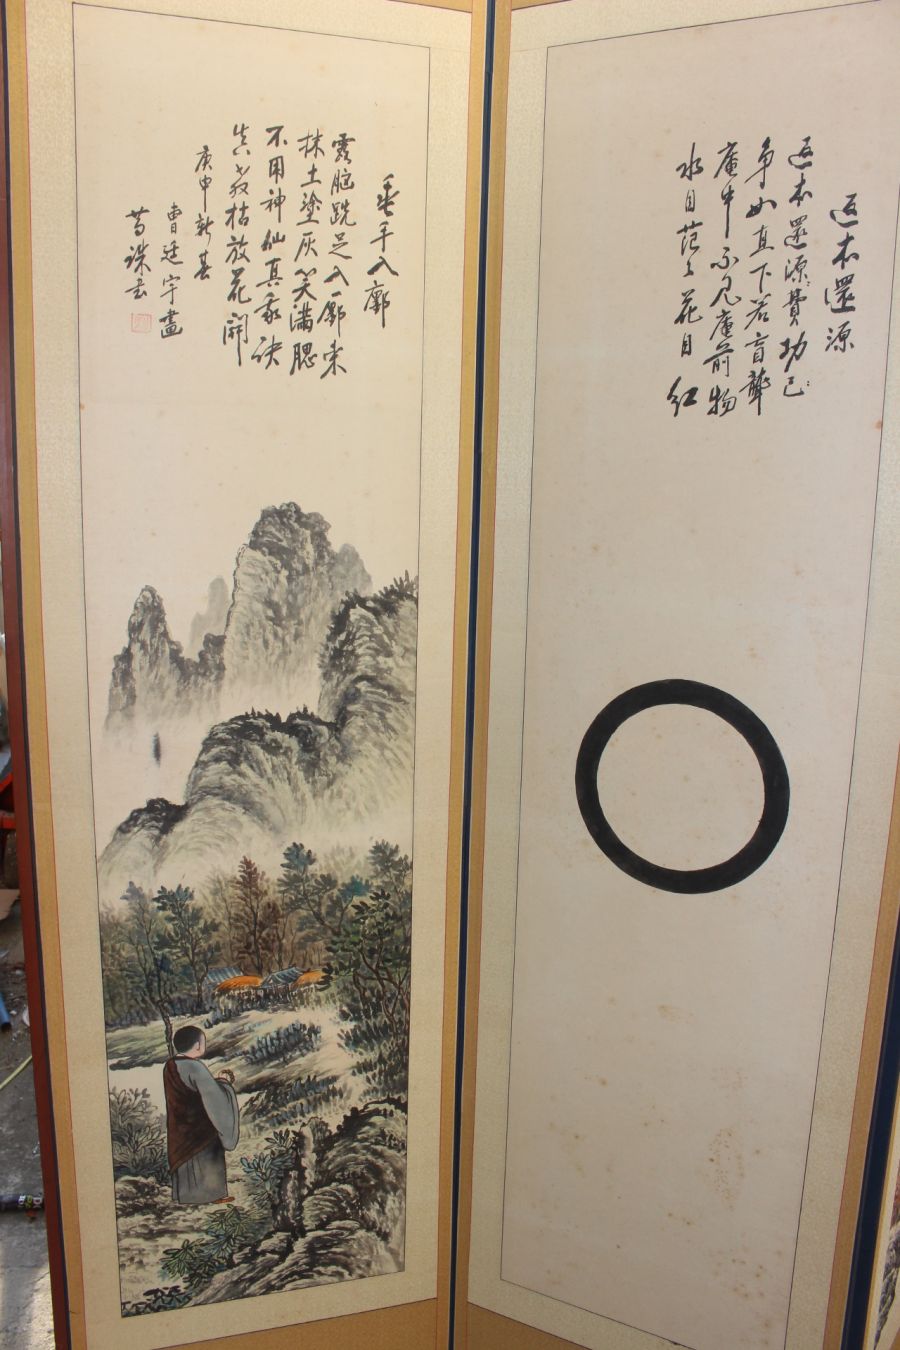 返本還源
返本還源費功已
争如直下若盲聾
庵中不見庵前物
水自茫々花自紅
垂手入廓
露胸跣足入廓来
抹土塗灰笑満腮
不用神仙真秘訣
直教枯放花開
庚申新春
曹廷宇畵